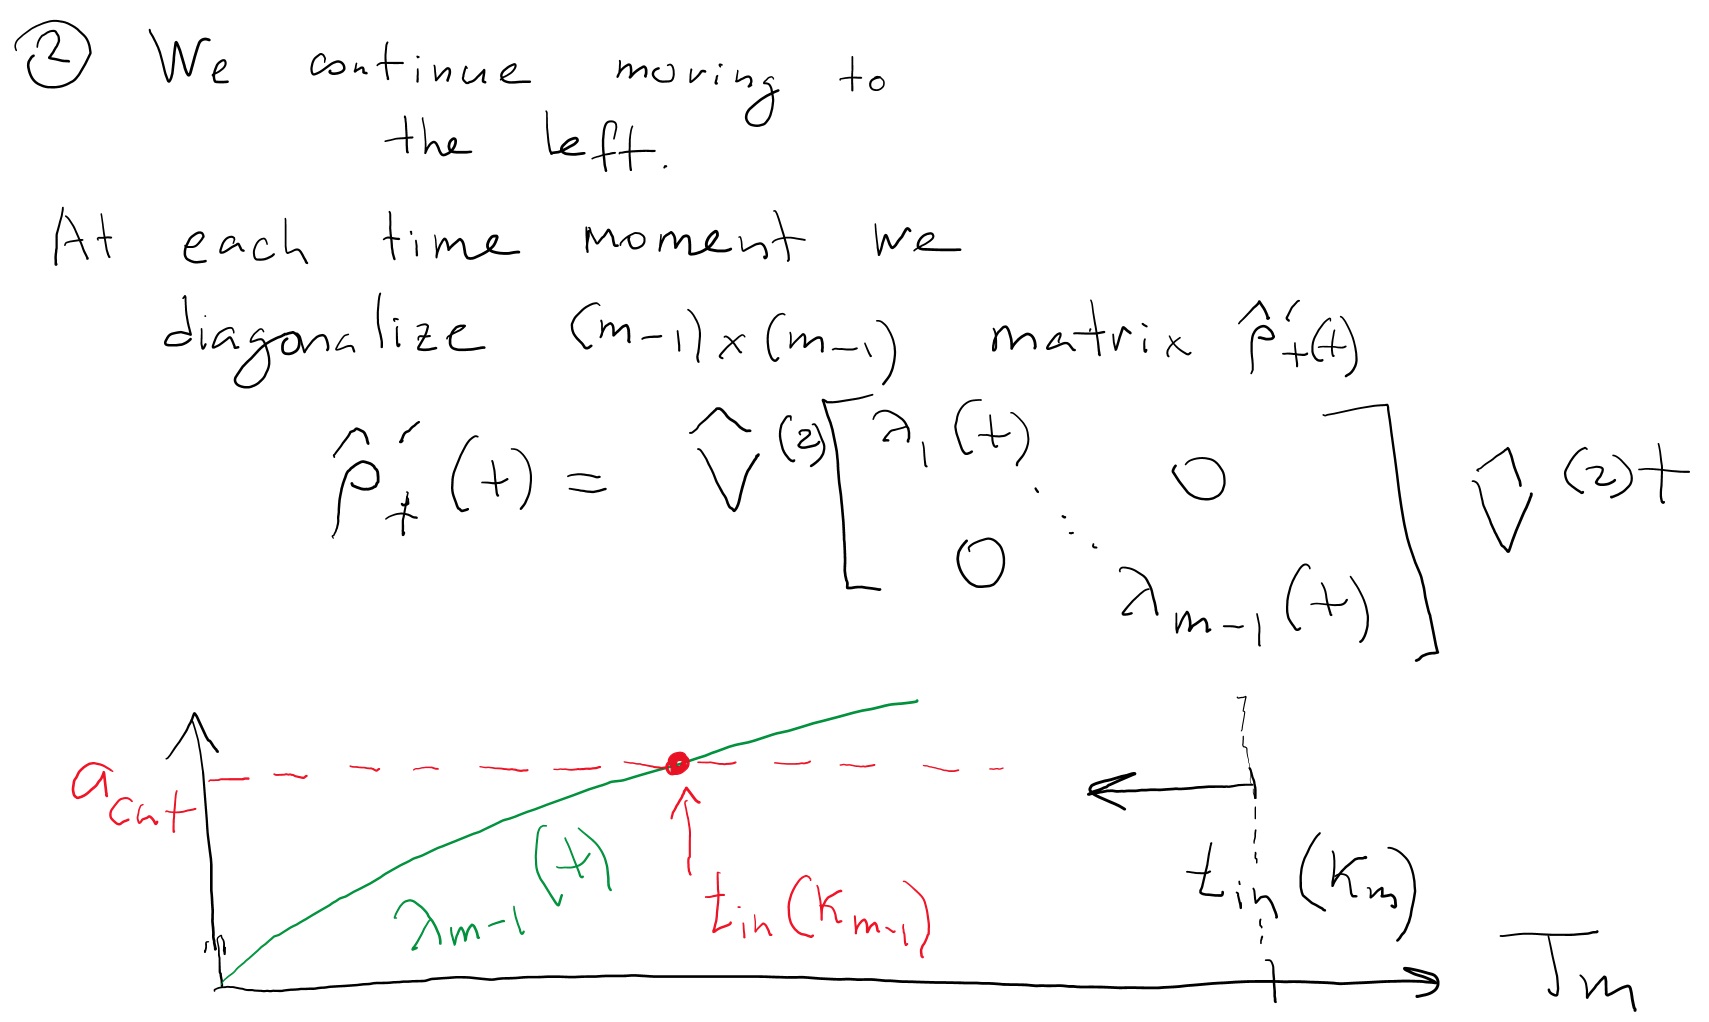 ② We continue moving to
the left.
At each time moment we
diagonalize (m-1)×(m-1) matrix ρ̂₊′(t)
ρ̂₊′(t) = V̂⁽²⁾ [ λ₁(t) 0
0 ⋱ λₘ₋₁(t) ] V̂⁽²⁾†
a_cut
λₘ₋₁(t)
t_in(Kₘ₋₁)
t_in(Kₘ)
Tₘ